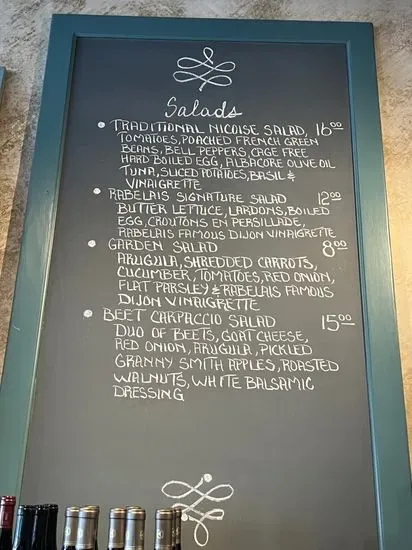 Salads
• TRADITIONAL NICOISE SALAD, 16⁰⁰
TOMATOES, POACHED FRENCH GREEN
BEANS, BELL PEPPERS, CAGE FREE
HARD BOILED EGG, ALBACORE OLIVE OIL
TUNA, SLICED POTATOES, BASIL &
VINAIGRETTE
• RABELAIS SIGNATURE SALAD 12⁰⁰
BUTTER LETTUCE, LARDONS, BOILED
EGG, CROUTONS EN PERSILLADE,
RABELAIS FAMOUS DIJON VINAIGRETTE
• GARDEN SALAD 8⁰⁰
ARUGULA, SHREDDED CARROTS,
CUCUMBER, TOMATOES, RED ONION,
FLAT PARSLEY & RABELAIS FAMOUS
DIJON VINAIGRETTE
• BEET CARPACCIO SALAD 15⁰⁰
DUO OF BEETS, GOAT CHEESE,
RED ONION, ARUGULA, PICKLED
GRANNY SMITH APPLES, ROASTED
WALNUTS, WHITE BALSAMIC
DRESSING